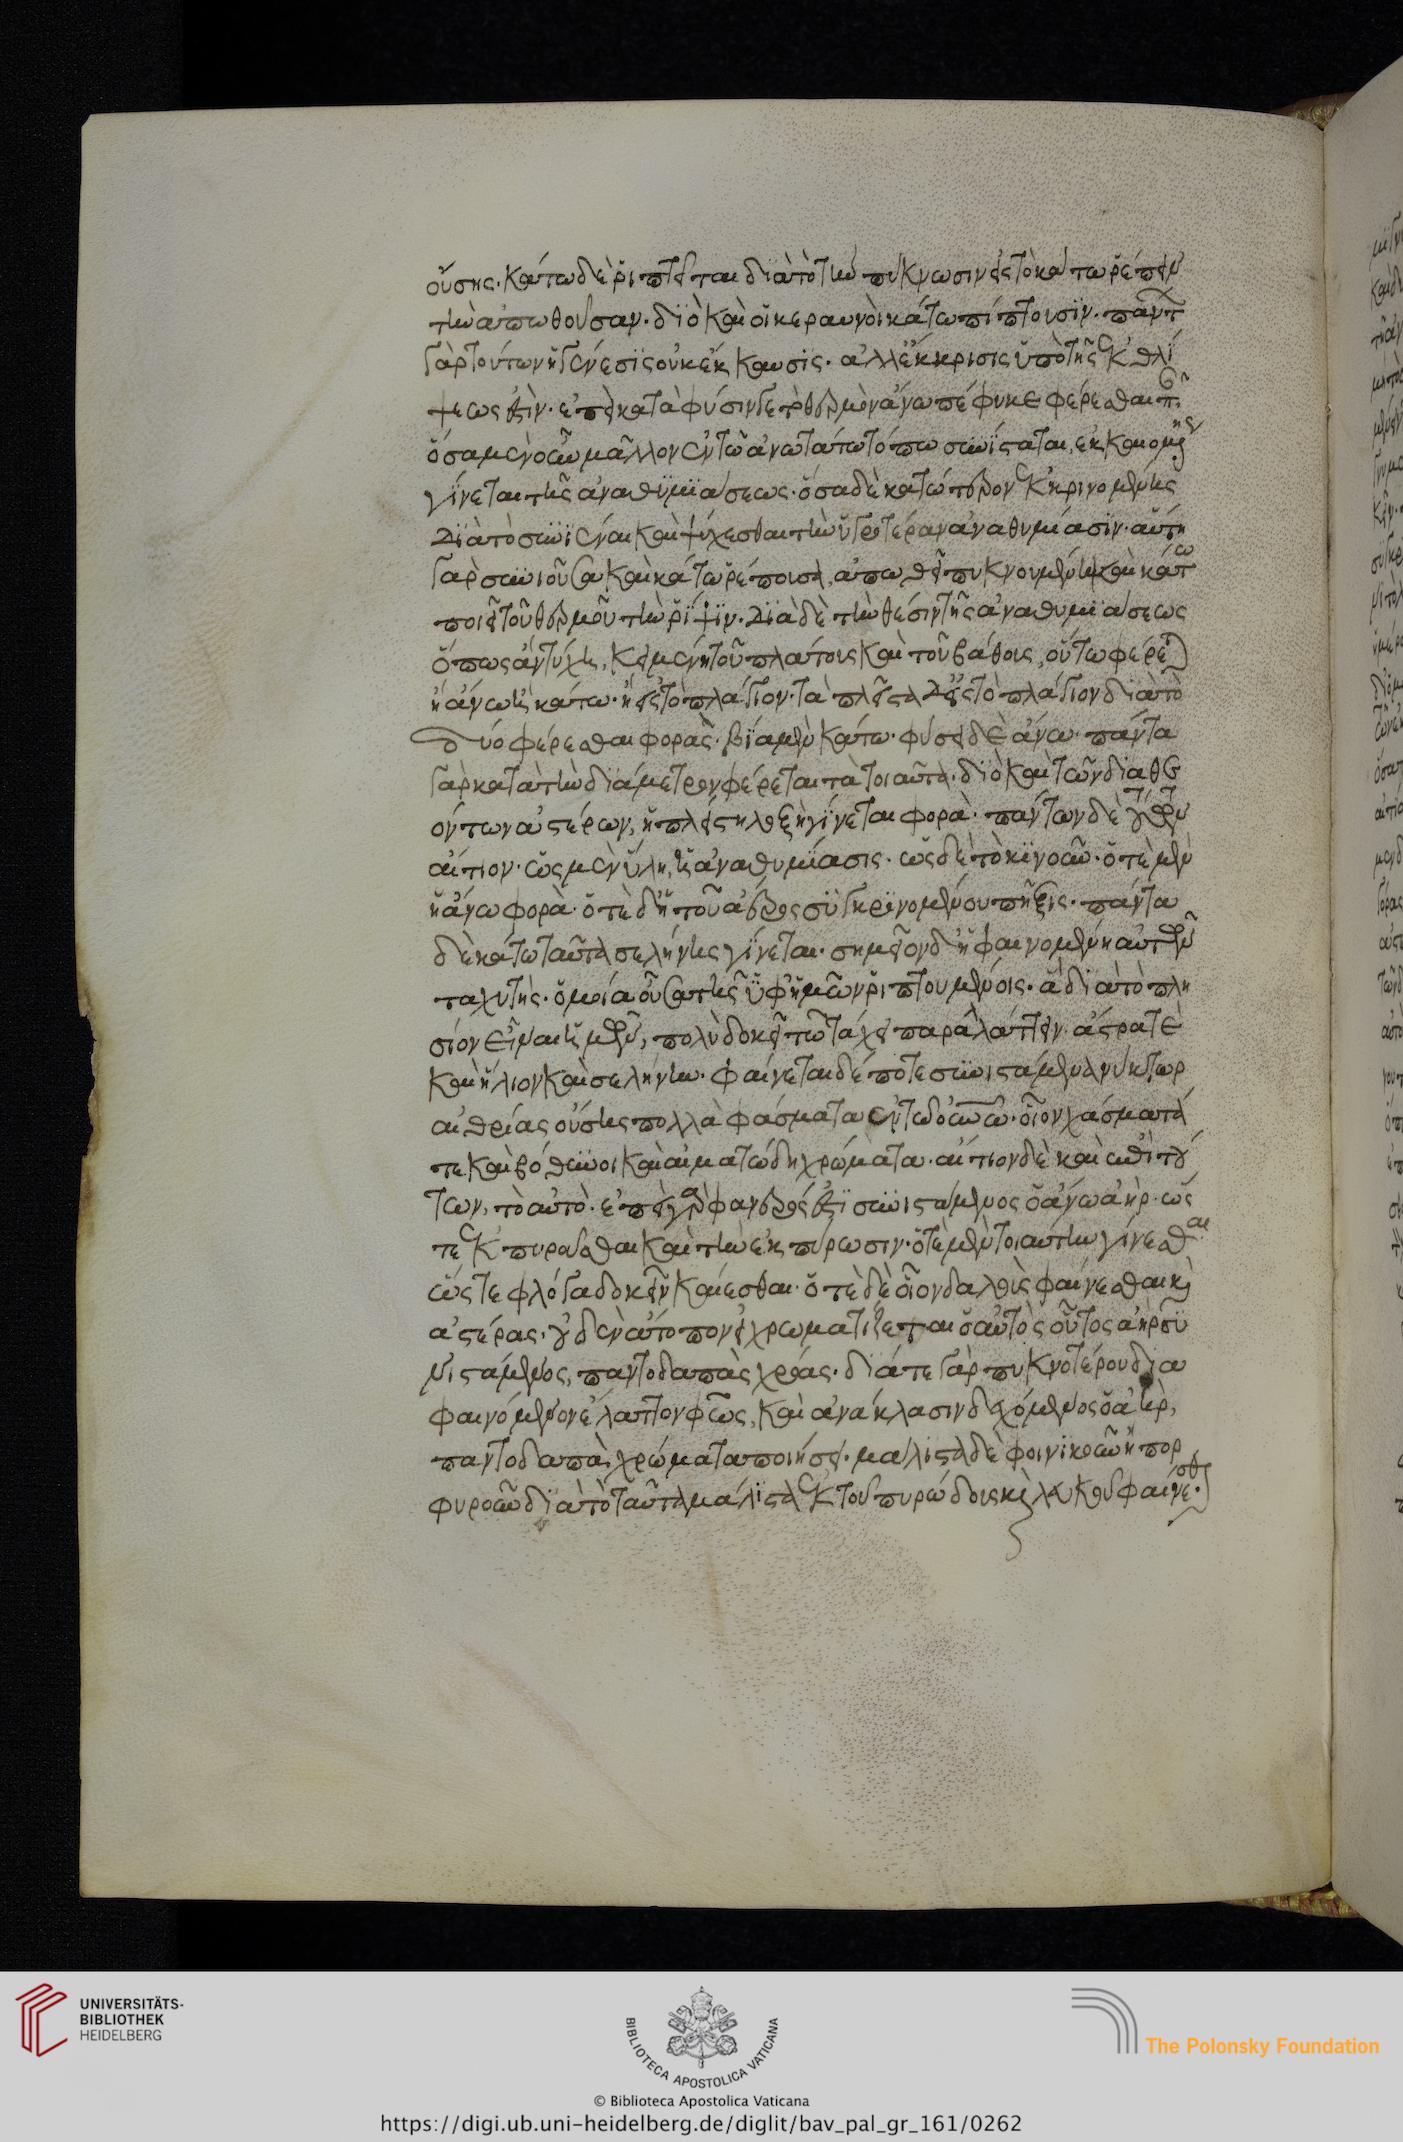 οὔσης. κάτω δὲ ῥιπτεῖται διὰ τὸ τὴν πύκνωσιν εἰς τὸ κάτω ῥέπειν
τὴν ἀπωθοῦσαν. διὸ καὶ οἱ κεραυνοὶ κάτω πίπτουσιν. πάντ
γὰρ τούτων ἡ γένεσις οὐκ ἔκκαυσις. ἀλλ' ἔκκρισις ὑπὸ τῆς ἐκθλί
ψεως ἐστίν. ἐπεὶ κατὰ φύσιν γε τὸ θερμὸν ἄνω πέφυκε φέρεσθαι π.
ὅσα μὲν οὖν μᾶλλον ἐν τῶ ἀνωτάτω τόπω συνίσταται, ἐκκαομένης
γίνεται τῆς ἀναθυμιάσεως. ὅσα δὲ κατώτερον ἐκκρινομένης
διὰ τὸ συνιέναι καὶ ψύχεσθαι τὴν ὑγροτέραν ἀναθυμίασιν. αὕτη
γὰρ συνιοῦσα καὶ κάτω ῥέπουσα, ἀπωθεῖ πυκνουμένη καὶ κάτω
ποιεῖ τοῦ θερμοῦ τὴν ῥίψιν. διὰ δὲ τὴν θέσιν τῆς ἀναθυμιάσεως
ὅπως ἂν τύχη, κειμένη τοῦ πλάτους καὶ τοῦ βάθους, οὕτω φέρεται
ἢ ἄνω ἢ κάτω. ἢ εἰς τὸ πλάγιον. τὰ πλεῖστα δ' εἰς τὸ πλάγιον διὰ τὸ
δύο φέρεσθαι φοράς. βία μὲν κάτω. φύσει δὲ ἄνω. πάντα
γὰρ κατὰ τὴν διάμετρον φέρεται τὰ τοιαῦτα. διὸ καὶ τῶν διαθε
όντων ἀστέρων, ἡ πλείστη λοξὴ γίνεται φορά. πάντων δὲ τούτων
αἴτιον. ὡς μὲν ὕλη, ἡ ἀναθυμίασις. ὡς δὲ τὸ κινοῦν. ὁτὲ μὲν
ἡ ἄνω φορά. ὁτὲ δ' ἡ τοῦ ἀέρος συγκρινομένου πῆξις. πάντα
δὲ κάτω ταῦτα σελήνης γίνεται. σημεῖον δ' ἡ φαινομένη αὐτῶν
ταχυτής. ὁμοία οὖσα τοῖς ὑφ' ἡμῶν ῥιπτουμένοις. ἃ διὰ τὸ πλη
σίον εἶναι ἡμῶν, πολὺ δοκεῖ τῶ τάχει παραλλάττειν. ἄστρα τὲ
καὶ ἥλιον καὶ σελήνην. φαίνεται δέ ποτε συνιστάμενα νύκτωρ
αἰθρίας οὔσης πολλὰ φάσματα ἐν τῶ οὐρανῶ. οἷον χάσματά
τε καὶ βόθυνοι καὶ αἱματώδη χρώματα. αἴτιον δὲ καὶ ἐπὶ τού
των, τὸ αὐτό. ἐπεὶ γὰρ φανερός ἐστι συνιστάμενος ὁ ἄνω ἀὴρ. ὥς
τε ἐκπυροῦσθαι καὶ τὴν ἐκπύρωσιν. ὁτὲ μὲν τοιαύτην γίνεσθαι
ὥστε φλόγα δοκεῖν καίεσθαι. ὁτὲ δὲ οἷον δαλοὺς φαίνεσθαι καὶ
ἀστέρας. οὐδὲν ἄτοπον εἰ χρωματίζεται ὁ αὐτὸς οὗτος ἀὴρ συ
νιστάμενος, παντοδαπὰς χρόας. διά τε γὰρ πυκνοτέρου δια
φαινόμενον ἔλαττον φῶς, καὶ ἀνάκλασιν δεχόμενος ὁ ἀὴρ,
παντοδαπὰ χρώματα ποιήσει. μάλιστα δὲ φοινικοῦν ἢ πορ
φυροῦν διὰ τὸ ταῦτα μάλιστα ἐκ τοῦ πυρώδους καὶ λευκοῦ φαίνεσθαι.
UNIVERSITÄTS-
BIBLIOTHEK
HEIDELBERG
BIBLIOTECA APOSTOLICA VATICANA
© Biblioteca Apostolica Vaticana
The Polonsky Foundation
https://digi.ub.uni-heidelberg.de/diglit/bav_pal_gr_161/0262